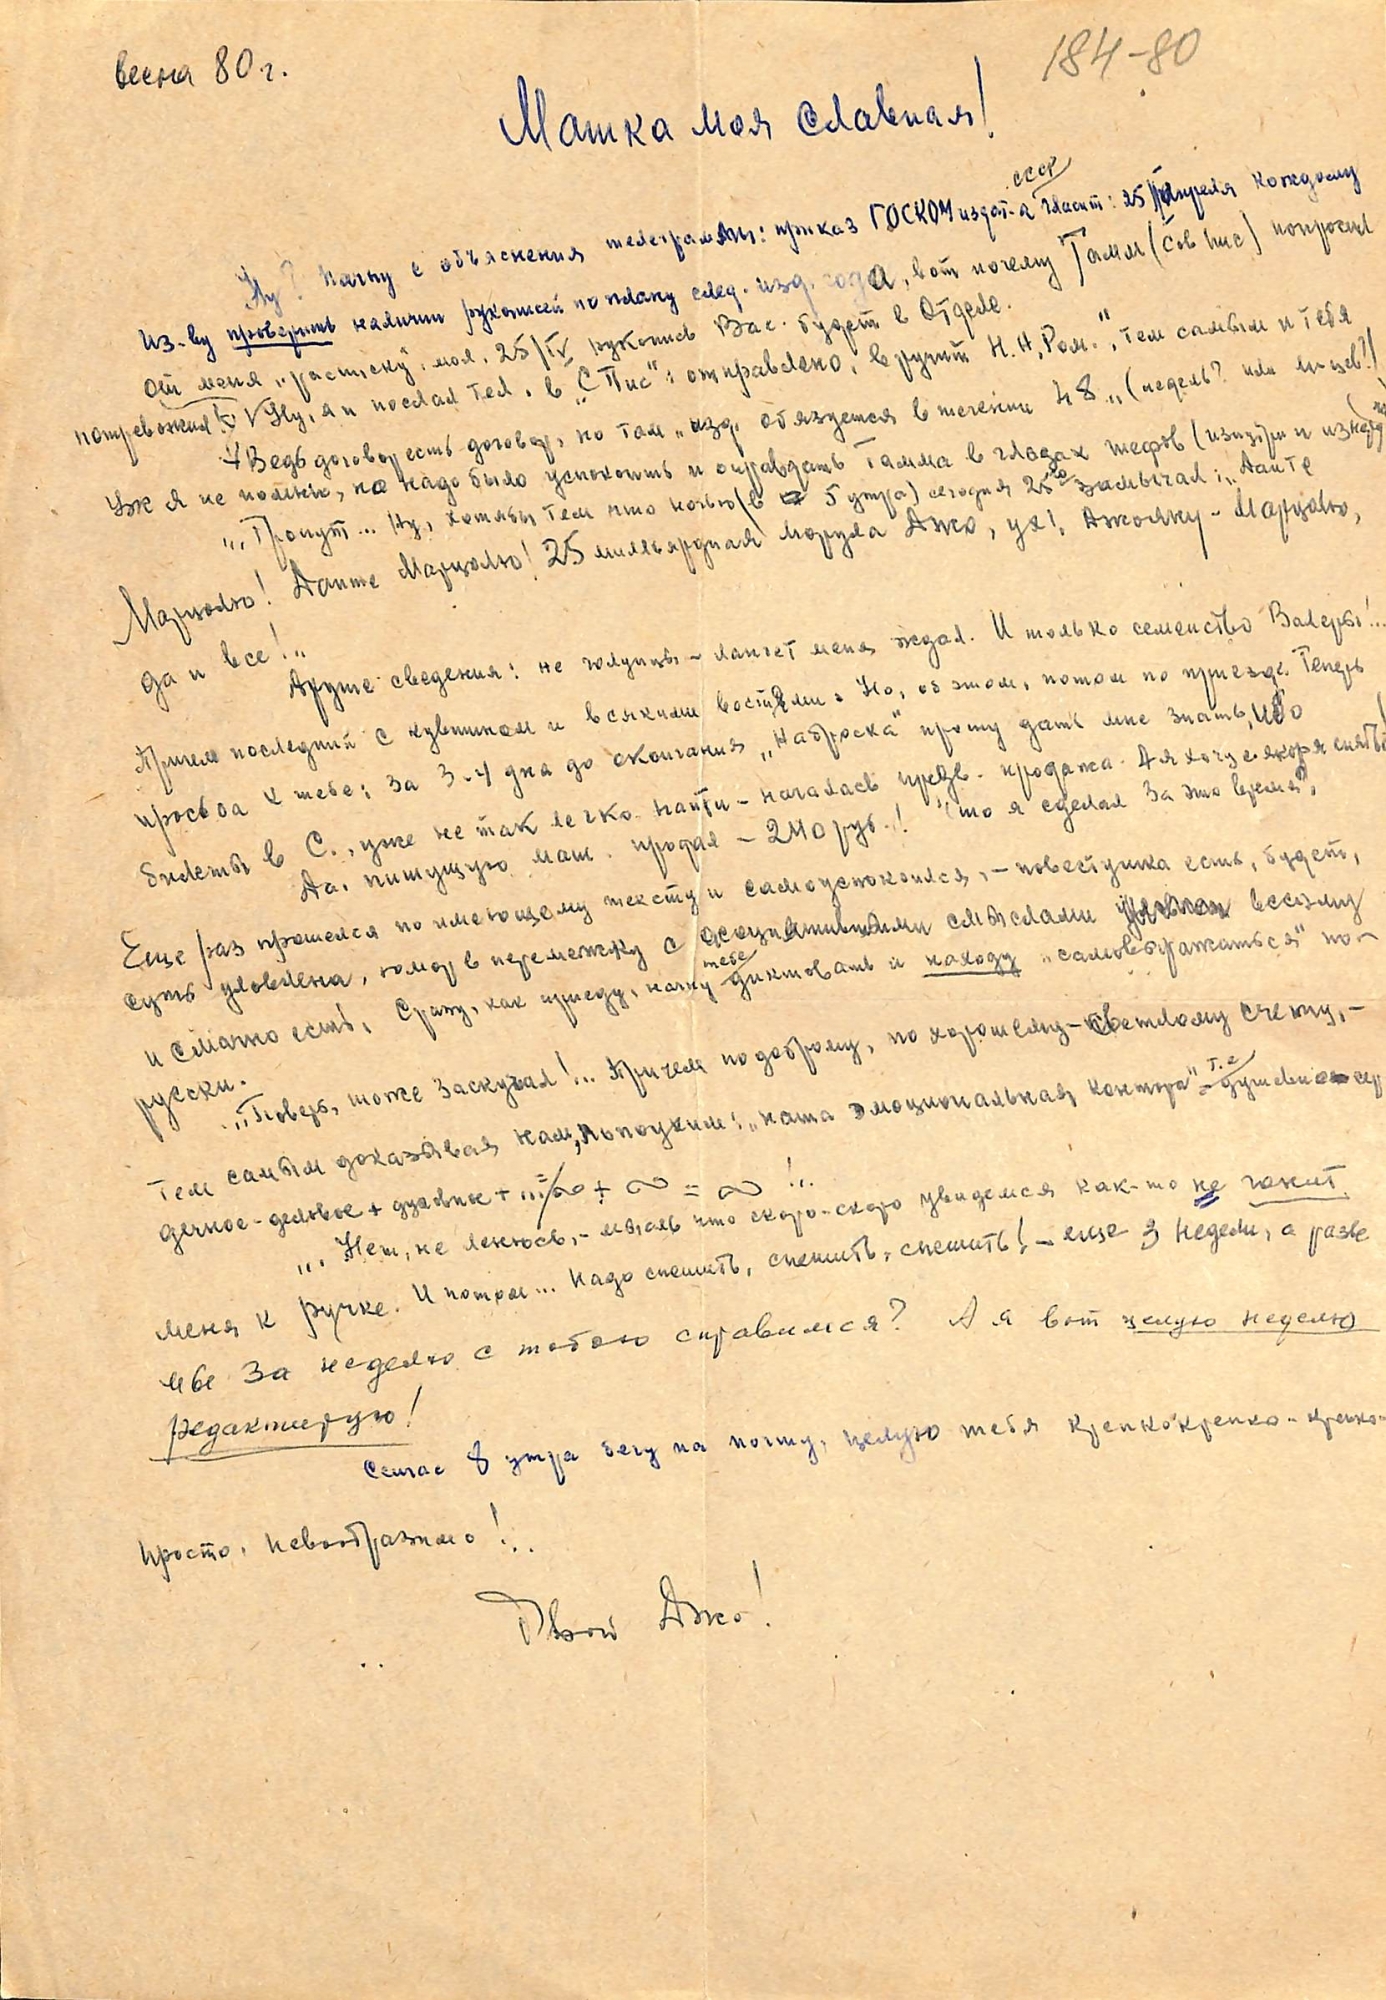 весна 80 г.
184-80
Машка моя славная!
СССР
Ну? Начну с объяснения телеграммы: приказ ГОСКОМиздат-а гласит: 25 апреля каждому
из-ву проверить наличии рукописей по плану след. изд. года, вот почему Тамм (Сов Пис) попросил
от меня "расписку", мол, 25/IV рукопись Вас. будет в Отделе.
Ну, я и послал тел. в "С Пис": отправлено, вручит Н.Н. Ром.", тем самым и тебя
потревожил
Ведь договор есть договор, но там "изд. обязуется в течении 48 "(недель? или м-цев?)
Уж я не помню, но надо было успокоить и оправдать Тамма в глазах шефов (изнутри и
"... Ну, хотябы тем что ночью (в 5 утра) сегодня 25го замычал: "Дайте
Марцолю! Дайте Марцолю! 25 Джо, ух!, - Марцолю,
да и все!"
Другие сведения: не - меня ждал. И только семейство Валеры!..
Причем последний с кувшином и всякими Но, об этом, потом по приезде. Теперь
просьба к тебе: за 3-4 дня до окончания "Наброска" прошу дать мне знать, ибо
билеты в С., уже не так легко найти - началась продажа. А я хочу с якоря сняться!
Да, пишущую маш. продал - 240 руб.! Что я сделал за это время?,
Еще раз прошелся по имеющему тексту и самоуспокоился, - повестушка есть, будет,
суть уловлена, юмор в перемежку с смыслами всему
и смачно есть. Сразу, как приеду, начну тебе диктовать и нахожу "самовыражаться" по-
русски.
"Поверь, тоже заскучал!... Причем по доброму, по хорошему-светлому счету, -
тем самым доказывая нам, : "наша эмоциональная контора" - т.е душевно-сер
дечное - деловое + духовное + ... ∞ + ∞ = ∞ !..
"Нет, не ленюсь, - мысль что скоро-скоро увидемся как-то не гонит
меня к ручке. И потом... Надо спешить, спешить, спешить! - еще 3 недели, а разве
мы за неделю с тобою справимся? А я вот целую неделю
редактирую!
Сейчас 8 утра бегу на почту, целую тебя крепко крепко-крепко-
просто, невообразимо!..
Твой Джо!